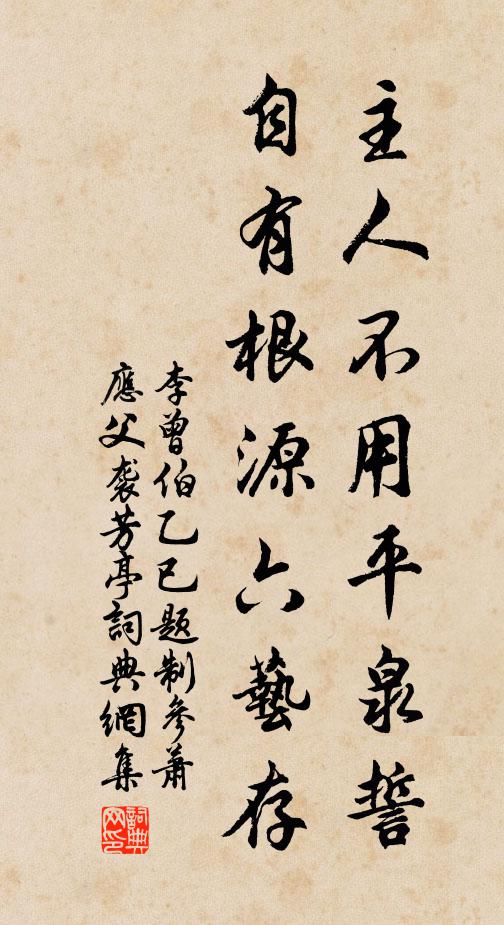 主人不用平泉誓
自有根源六藝存
李曾伯乙巳題制參蕭
應父襲芳亭詞典網集
詞典网印